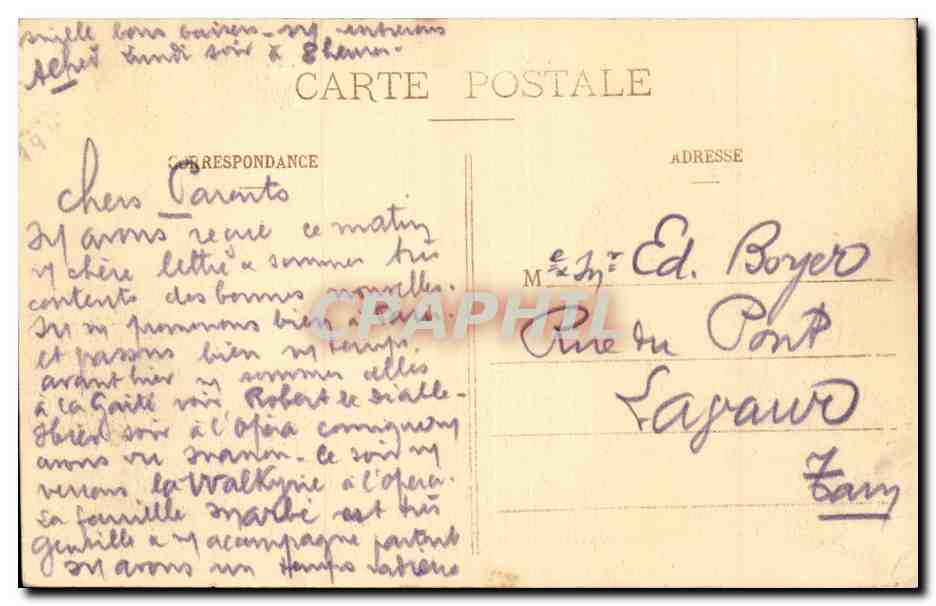 mille bons baisers - ns rentrerons
Alfred Lundi soir à 8 heures.
CARTE POSTALE
CORRESPONDANCE
ADRESSE
Chers Parents
Ns avons reçue ce matin
v chère lettre & sommes très
contents des bonnes nouvelles.
Ns ns promenons bien à Paris.
et passons bien n temps
avant hier ns sommes allés
à la Gaité voir Robert le Diable -
Hier soir à l'Opéra comique ns
avons vu Manon - Ce soir ns
verrons la Walkyrie à l'opéra.
La famille est très
Gentille & ns accompagne partout
Ns avons un temps
Me & Mr Ed. Boyer
Rue du Pont
Lagave
Tarn
CPAPHIL